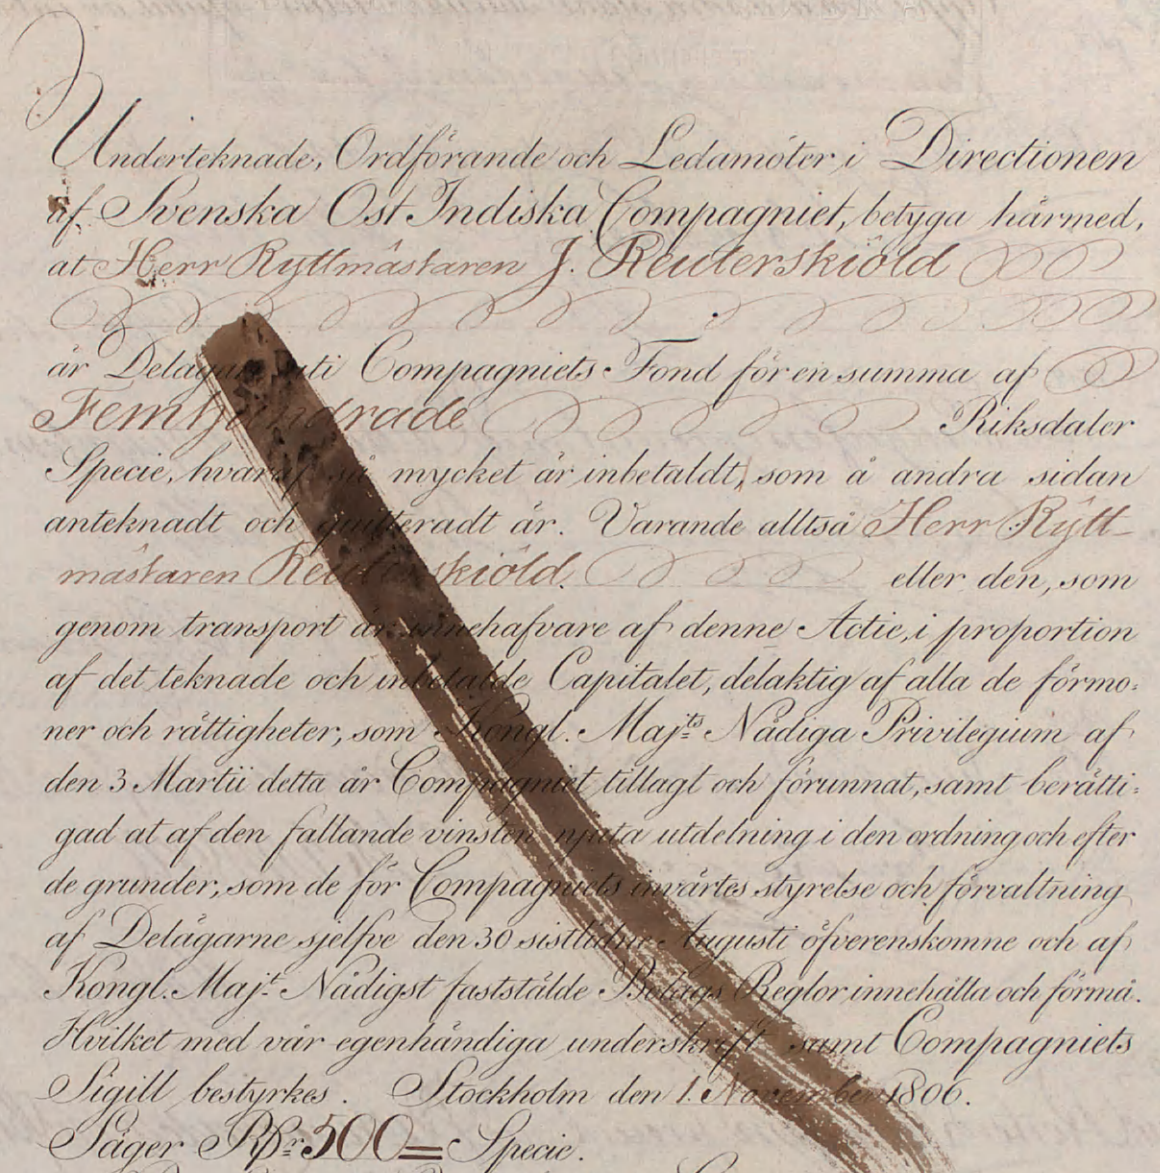 Underteknade, Ordförande och Ledamöter i Directionen
af Svenska Ost Indiska Compagniet, betyga härmed,
at Herr Ryttmästaren J. Reuterskiöld
är Delägare uti Compagniets Fond för en summa af
Femhundrade Riksdaler
Specie, hvaraf så mycket är inbetaldt, som å andra sidan
anteknadt och quitteradt är. Varande alltså Herr Rytt-
mästaren Reuterskiöld. eller den, som
genom transport är innehafvare af denne Actie, i proportion
af det teknade och inbetalde Capitalet, delaktig af alla de förmo:
ner och rättigheter, som Kongl. Majts Nådiga Privilegium af
den 3 Martii detta år Compagniet tillagt och förunnat, samt berätti:
gad at af den fallande vinsten njuta utdelning i den ordning och efter
de grunder, som de för Compagniets invärtes styrelse och förvaltning
af Delägarne sjelfve den 30 sistlidne Augusti öfverenskomne och af
Kongl. Majt Nådigst fastställde Bolags Reglor innehålla och förmå.
Hvilket med vår egenhändiga underskrift samt Compagniets
Sigill bestyrkes. Stockholm den 1. November 1806.
Säger Rdr 500 = Specie.